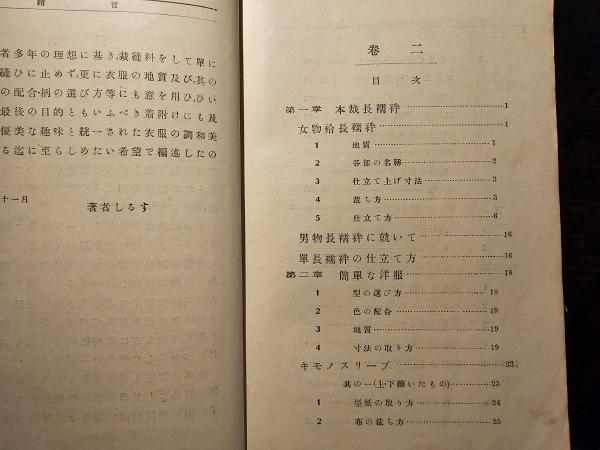 緒言
者多年の理想に基き、裁縫科をして單に
縫ひに止めず、更に衣服の地質及び、其の
の配合・柄の選び方等にも意を用ひ、ひい
最後の目的ともいふべき着附けにも及
優美な趣味と統一された衣服の調和美
る迄に至らしめたい希望で編述したの
十一月
著者しるす
卷二
目次
第一章 本裁長襦袢 1
女物袷長襦袢 1
1 地質 1
2 各部の名稱 2
3 仕立て上げ寸法 3
4 裁ち方 3
5 仕立て方 6
男物長襦袢に就いて 16
單長襦袢の仕立て方 16
第二章 簡單な洋服 18
1 型の選び方 18
2 色の配合 19
3 地質 19
4 寸法の取り方 19
キモノスリーブ 23
其の一(上・下續いたもの) 23
1 型紙の取り方 24
2 布の裁ち方 25